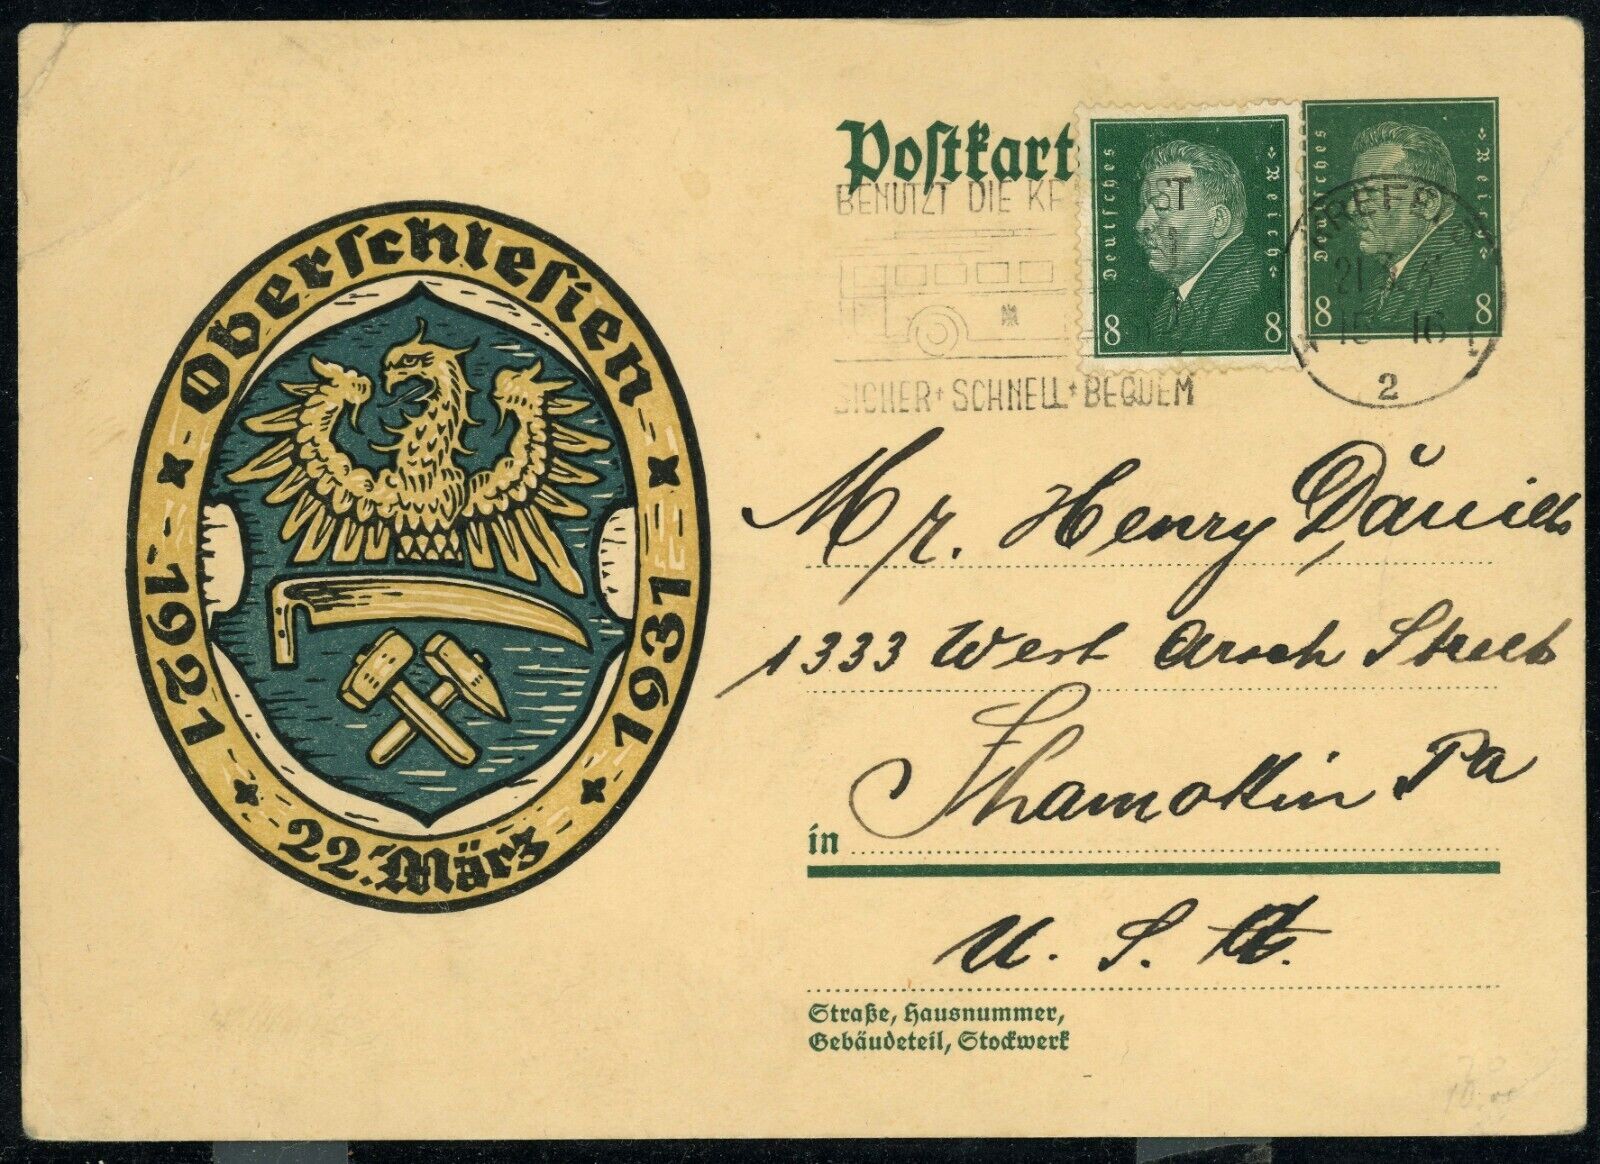 Oberschlesien
1921
1931
22. März
Postkart
BENUTZT DIE KR ST
SICHER + SCHNELL + BEQUEM
Deutsches Reich
8 8
Deutsches Reich
8 8
KREFELD
21.3.31
15-16
2
Mr. Henry Däniels
1333 West Arsch Street
Shamokin Pa
in
U. S. A.
Straße, Hausnummer,
Gebäudeteil, Stockwerk